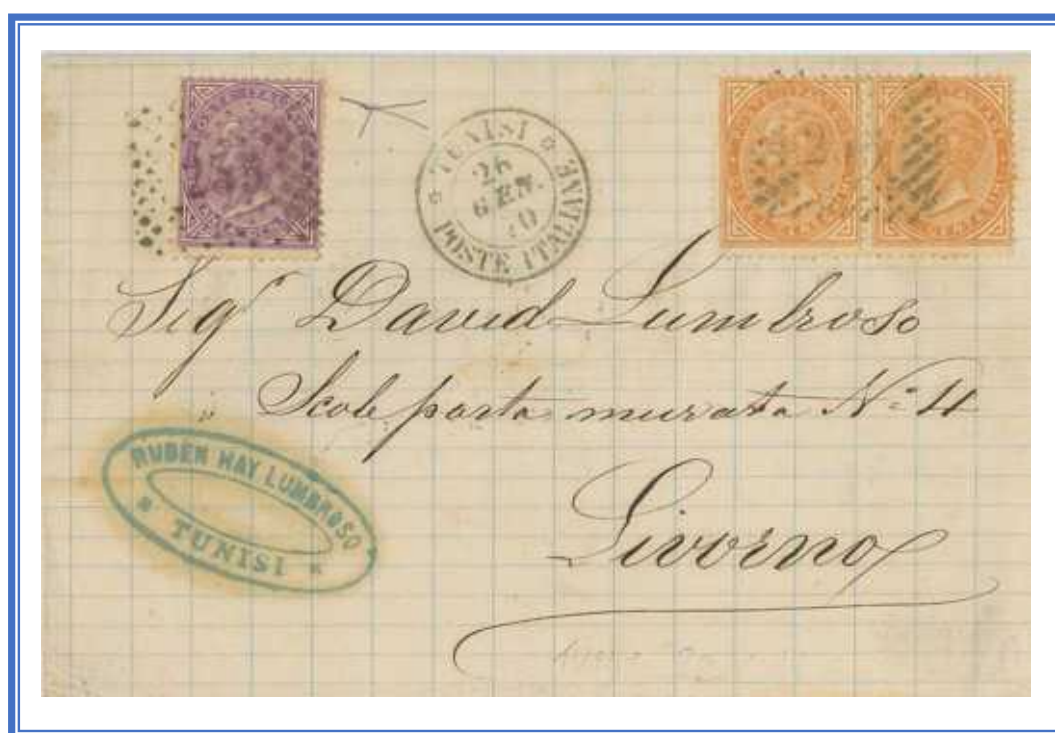 TUNISI
26
GEN.
70
POSTE ITALIANE
Sigr David Lumbroso
Scole porta murata No 11
Livorno
RUBEN HAY LUMBROSO
TUNISI